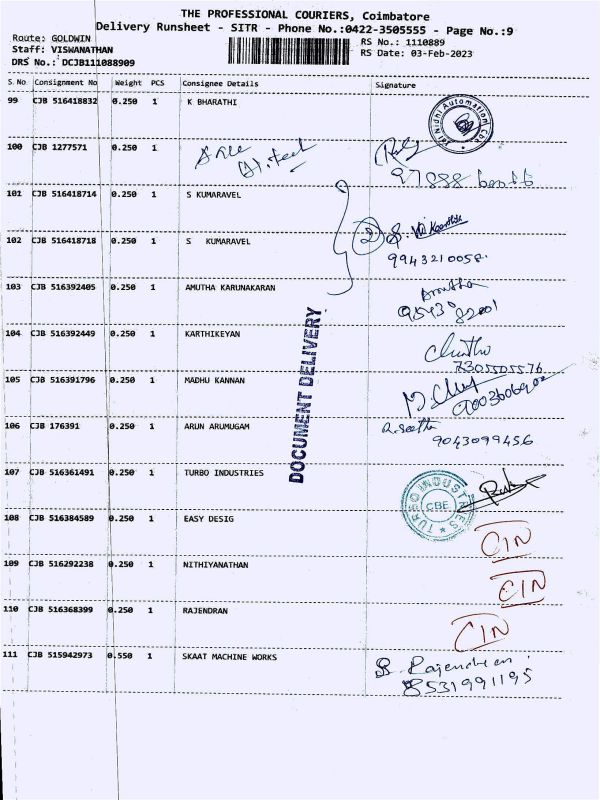 THE PROFESSIONAL COURIERS, Coimbatore
Delivery Runsheet - SITR - Phone No.:0422-3505555 - Page No.:9
Route: GOLDWIN
Staff: VISWANATHAN
DRS No.: DCJB111088909
RS No.: 1110889
RS Date: 03-Feb-2023
S.No Consignment No Weight PCS Consignee Details Signature
99 CJB 516418832 0.250 1 K BHARATHI
Sai Nidhi Automation Cbe
100 CJB 1277571 0.250 1
101 CJB 516418714 0.250 1 S KUMARAVEL
102 CJB 516418718 0.250 1 S KUMARAVEL
2
9943210058.
103 CJB 516392405 0.250 1 AMUTHA KARUNAKARAN
Amutha
104 CJB 516392449 0.250 1 KARTHIKEYAN
7305505576
105 CJB 516391796 0.250 1 MADHU KANNAN
106 CJB 176391 0.250 1 ARUN ARUMUGAM
A.Seetha
9043099456
DOCUMENT DELIVERY
107 CJB 516361491 0.250 1 TURBO INDUSTRIES
TURBO INDUSTRIES
CBE
108 CJB 516384589 0.250 1 EASY DESIG
CIN
109 CJB 516292238 0.250 1 NITHIYANATHAN
CIN
110 CJB 516368399 0.250 1 RAJENDRAN
CIN
111 CJB 515942973 0.550 1 SKAAT MACHINE WORKS
S. Rajendran
8531991195